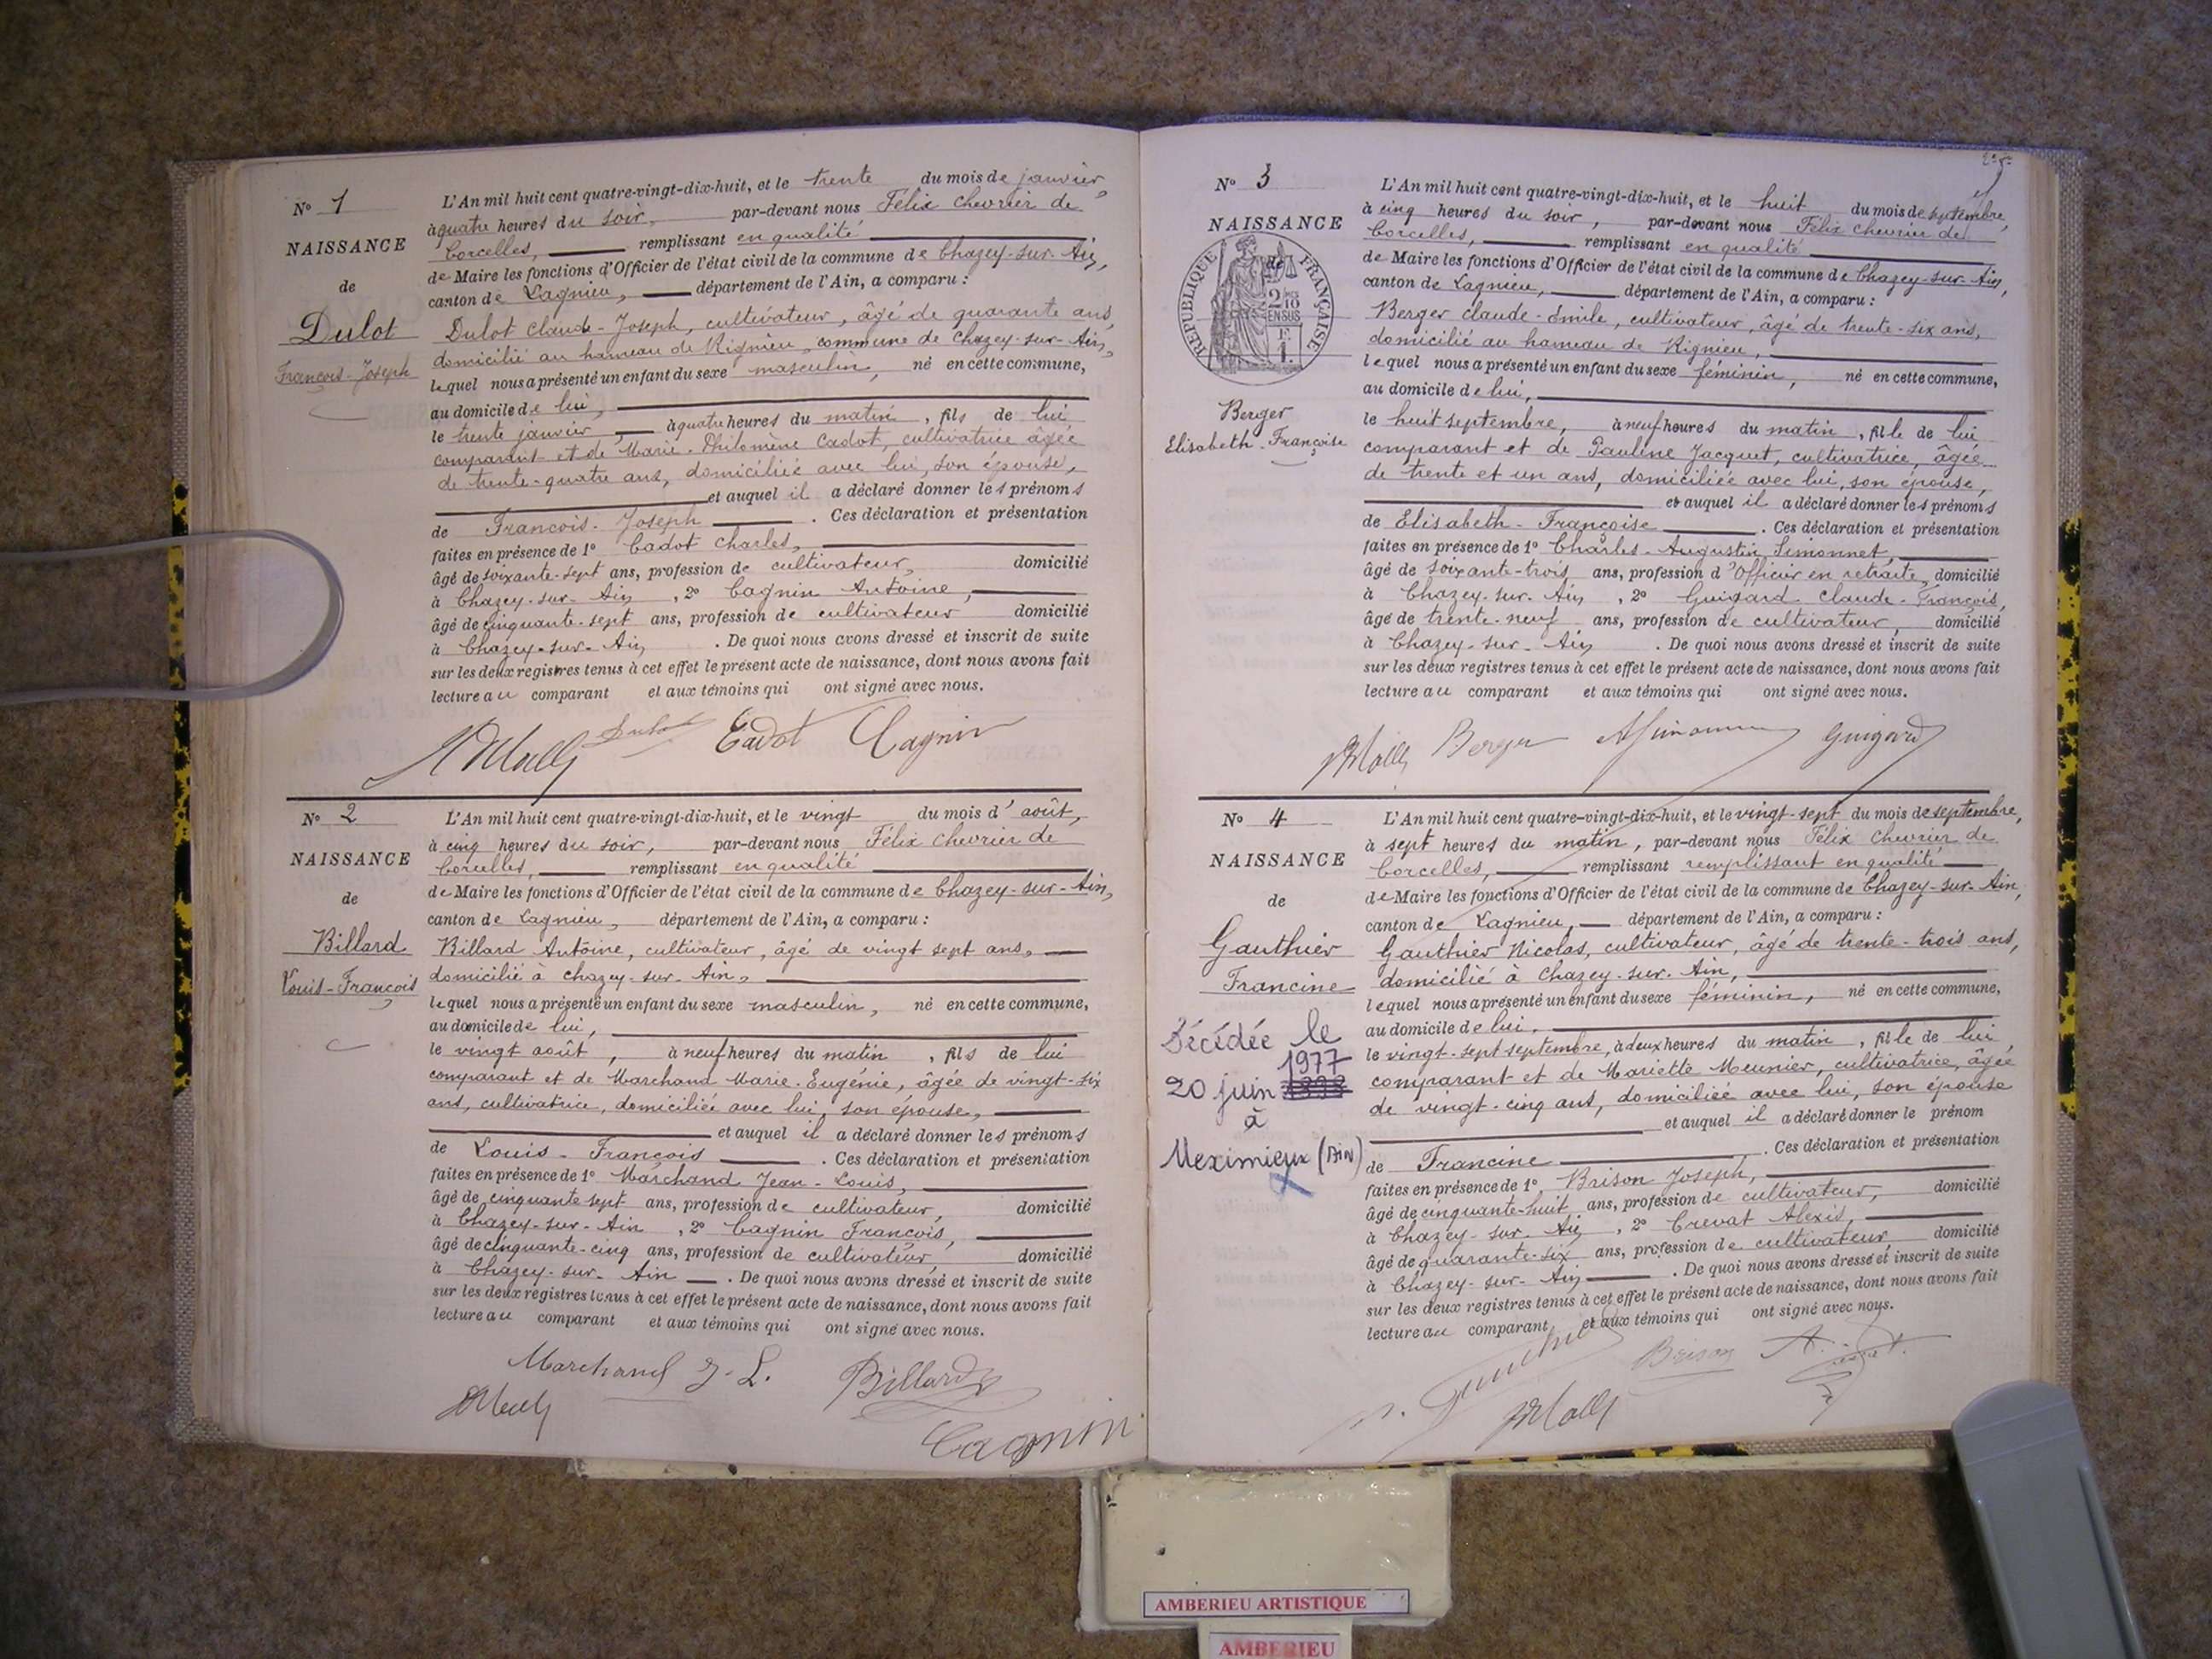 N° 1
NAISSANCE
de
Dulot
François-Joseph
L'An mil huit cent quatre-vingt-dix-huit, et le trente du mois de janvier,
à quatre heures du soir, par-devant nous Félix Chevrier de
Corcelles, remplissant en qualité
de Maire les fonctions d'Officier de l'état civil de la commune de Chazey-sur-Ain,
canton de Lagnieu, département de l'Ain, a comparu :
Dulot Claude-Joseph, cultivateur, âgé de quarante ans,
domicilié au hameau de Rignieu, commune de Chazey-sur-Ain,
lequel nous a présenté un enfant du sexe masculin, né en cette commune,
au domicile de lui,
le trente janvier, à quatre heures du matin, fils de lui
comparant et de Marie-Philomène Cadot, cultivatrice âgée
de trente-quatre ans, domiciliée avec lui, son épouse,
et auquel il a déclaré donner les prénoms
de François-Joseph. Ces déclaration et présentation
faites en présence de 1° Cadot Charles,
âgé de soixante-sept ans, profession de cultivateur, domicilié
à Chazey-sur-Ain, 2° Cagnin Antoine,
âgé de cinquante-sept ans, profession de cultivateur domicilié
à Chazey-sur-Ain. De quoi nous avons dressé et inscrit de suite
sur les deux registres tenus à cet effet le présent acte de naissance, dont nous avons fait
lecture au comparant et aux témoins qui ont signé avec nous.
Dulot Cadot Cagnin
N° 2
NAISSANCE
de
Billard
Louis-François
L'An mil huit cent quatre-vingt-dix-huit, et le vingt du mois d'août,
à cinq heures du soir, par-devant nous Félix Chevrier de
Corcelles, remplissant en qualité
de Maire les fonctions d'Officier de l'état civil de la commune de Chazey-sur-Ain,
canton de Lagnieu, département de l'Ain, a comparu :
Billard Antoine, cultivateur, âgé de vingt sept ans,
domicilié à Chazey-sur-Ain,
lequel nous a présenté un enfant du sexe masculin, né en cette commune,
au domicile de lui,
le vingt août, à neuf heures du matin, fils de lui
comparant et de Marchand Marie-Eugénie, âgée de vingt-six
ans, cultivatrice, domiciliée avec lui, son épouse,
et auquel il a déclaré donner les prénoms
de Louis-François. Ces déclaration et présentation
faites en présence de 1° Marchand Jean-Louis,
âgé de cinquante sept ans, profession de cultivateur, domicilié
à Chazey-sur-Ain, 2° Cagnin François,
âgé de cinquante-cinq ans, profession de cultivateur, domicilié
à Chazey-sur-Ain. De quoi nous avons dressé et inscrit de suite
sur les deux registres tenus à cet effet le présent acte de naissance, dont nous avons fait
lecture au comparant et aux témoins qui ont signé avec nous.
Marchand J-L. Billard
Cagnin
N° 3
NAISSANCE
de
RÉPUBLIQUE FRANÇAISE
2/10
EN SUS
F.
1.
Berger
Elisabeth-Françoise
L'An mil huit cent quatre-vingt-dix-huit, et le huit du mois de septembre,
à cinq heures du soir, par-devant nous Félix Chevrier de
Corcelles, remplissant en qualité
de Maire les fonctions d'Officier de l'état civil de la commune de Chazey-sur-Ain,
canton de Lagnieu, département de l'Ain, a comparu :
Berger Claude-Emile, cultivateur, âgé de trente-six ans,
domicilié au hameau de Rignieu,
lequel nous a présenté un enfant du sexe féminin, né en cette commune,
au domicile de lui,
le huit septembre, à neuf heures du matin, fille de lui
comparant et de Pauline Jacquet, cultivatrice, âgée
de trente et un ans, domiciliée avec lui, son épouse,
et auquel il a déclaré donner les prénoms
de Elisabeth-Françoise. Ces déclaration et présentation
faites en présence de 1° Charles-Augustin Simonnet,
âgé de soixante-trois ans, profession d'Officier en retraite, domicilié
à Chazey-sur-Ain, 2° Guigard Claude-François,
âgé de trente-neuf ans, profession de cultivateur, domicilié
à Chazey-sur-Ain. De quoi nous avons dressé et inscrit de suite
sur les deux registres tenus à cet effet le présent acte de naissance, dont nous avons fait
lecture au comparant et aux témoins qui ont signé avec nous.
Berger Guigard
N° 4
NAISSANCE
de
Gauthier
Francine
Décédée le
1977
20 juin
à
Meximieux (AIN)
L'An mil huit cent quatre-vingt-dix-huit, et le vingt-sept du mois de septembre,
à sept heures du matin, par-devant nous Félix Chevrier de
Corcelles, remplissant remplissant en qualité
de Maire les fonctions d'Officier de l'état civil de la commune de Chazey-sur-Ain,
canton de Lagnieu, département de l'Ain, a comparu :
Gauthier Nicolas, cultivateur, âgé de trente-trois ans,
domicilié à Chazey-sur-Ain,
lequel nous a présenté un enfant du sexe féminin, né en cette commune,
au domicile de lui,
le vingt-sept septembre, à deux heures du matin, fille de lui
comparant et de Mariette Meunier, cultivatrice, âgée
de vingt-cinq ans, domiciliée avec lui, son épouse
et auquel il a déclaré donner le prénom
de Francine. Ces déclaration et présentation
faites en présence de 1° Brison Joseph,
âgé de cinquante-huit ans, profession de cultivateur, domicilié
à Chazey-sur-Ain, 2° Crevat Alexis,
âgé de quarante-six ans, profession de cultivateur domicilié
à Chazey-sur-Ain. De quoi nous avons dressé et inscrit de suite
sur les deux registres tenus à cet effet le présent acte de naissance, dont nous avons fait
lecture au comparant et aux témoins qui ont signé avec nous.
Brison
AMBERIEU ARTISTIQUE
AMBERIEU